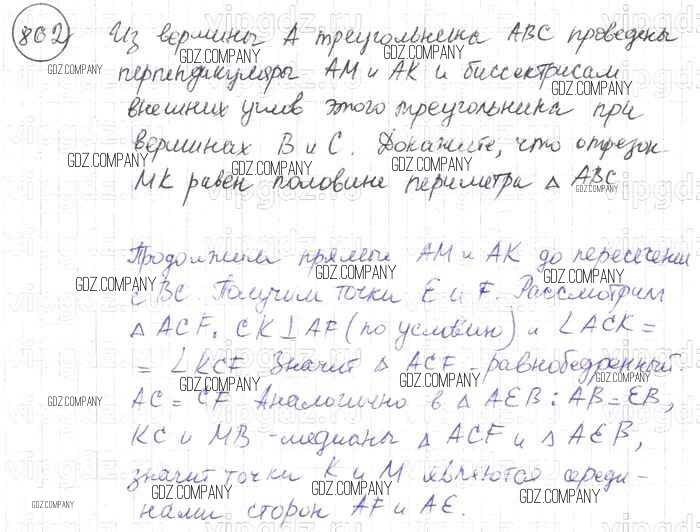 802) Из вершины A треугольника ABC проведены
перпендикуляры AM и AK к биссектрисам
внешних углов этого треугольника при
вершинах B и C. Докажите, что отрезок
MK равен половине периметра △ ABC
Продолжим прямые AM и AK до пересечения
с BC. Получим точки E и F. Рассмотрим
△ ACF. CK⊥AF (по условию) и ∠ACK =
= ∠KCF. Значит △ ACF - равнобедренный.
AC = CF. Аналогично в △ AEB: AB = EB,
KC и MB - медианы △ ACF и △ AEB,
значит точки K и M являются середи-
нами сторон AF и AE.